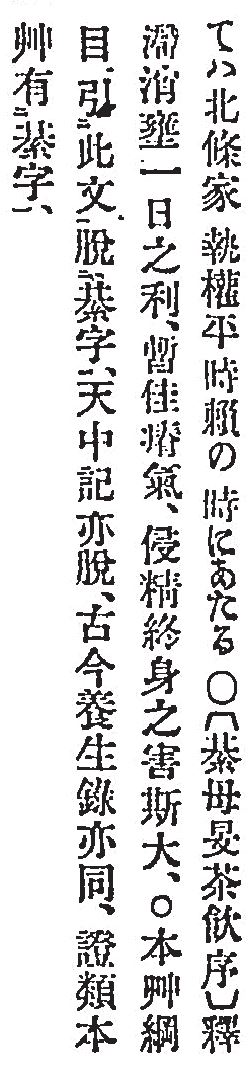 てハ北條家執權平時頼の時にあたる〇﹝綦母旻茶飲序﹞釋
滯消壅一日之利、暫佳瘠氣、侵精終身之害斯大、〇本艸綱
目引此文脫綦字、天中記亦脫、古今養生錄亦同、證類本
艸有綦字、